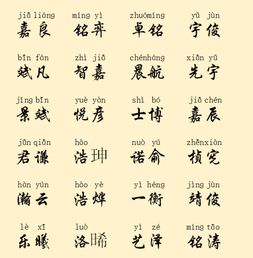 jiā liáng míng yì zhuómíng yǔ jùn
嘉良 铭弈 卓铭 宇俊
bīn fán zhì jiā chénháng xiān yǔ
斌凡 智嘉 晨航 先宇
jǐng bīn yuè yàn shì bó jiā chén
景斌 悦彦 士博 嘉辰
jūn qiān hào nuò yú zhēnxiàn
君谦 浩珅 诺俞 桢宪
hàn yún hào yè yì héng jìng jùn
瀚云 浩烨 一衡 靖俊
lè xī luò yì zé míng tāo
乐曦 洛晞 艺泽 铭涛